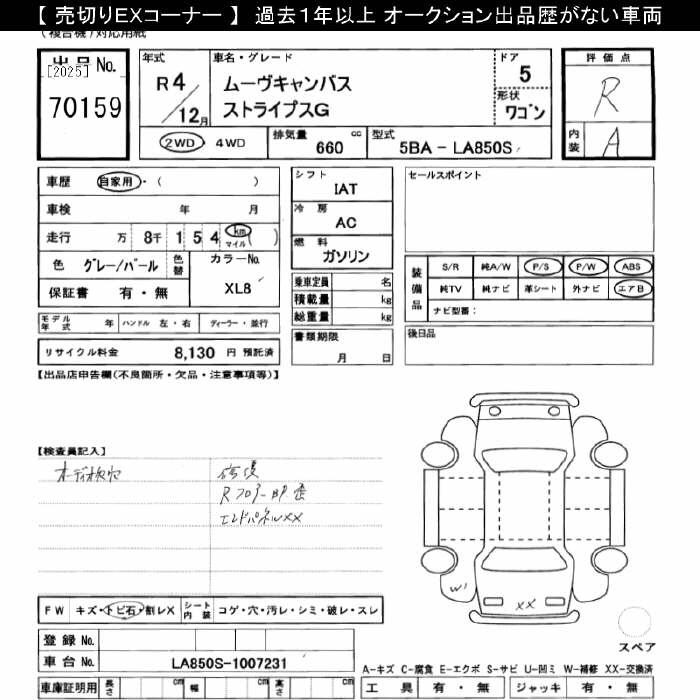 【 売切りEXコーナー 】 過去１年以上 オークション出品歴がない車両
(複合機)対応用紙
出品No.
[2025]
70159
年式
R 4 / 12月
車名・グレード
ムーヴキャンバス
ストライプスG
ドア
5
形状
ワゴン
評価点
R
内装
A
2WD・4WD
排気量
660 cc
型式
5BA - LA850S
車歴 自家用・( )
車検 年 月
走行 万 8千 1 5 4 km マイル ( )
色 グレー/パール
色替
カラーNo.
XL8
保証書 有・無
モデル年式 年 ハンドル 左・右 ディーラー・並行
リサイクル料金 8,130 円 預託済
シフト
IAT
冷房
AC
燃料
ガソリン
乗車定員 名
積載量 kg
総重量 kg
書類期限
月 日
セールスポイント
装備品
S/R 純A/W P/S P/W ABS
純TV 純ナビ 革シート 外ナビ エアB
ナビ型番：
後日品
【出品店申告欄(不良箇所・欠品・注意事項等)】
【検査員記入】
オーディオ取穴
修復
Rフロアー BP 歪
エンドパネルXX
W1
XX
スペア
FW キズ・トビ石・割レX
シート内装 コゲ・穴・汚レ・シミ・破レ・スレ
登録No.
車台No. LA850S-1007231
車庫証明用 長さ cm 幅 cm 高さ cm
A-キズ C-腐食 E-エクボ S-サビ U-凹ミ W-補修 XX-交換済
工具 有・無 ジャッキ 有・無